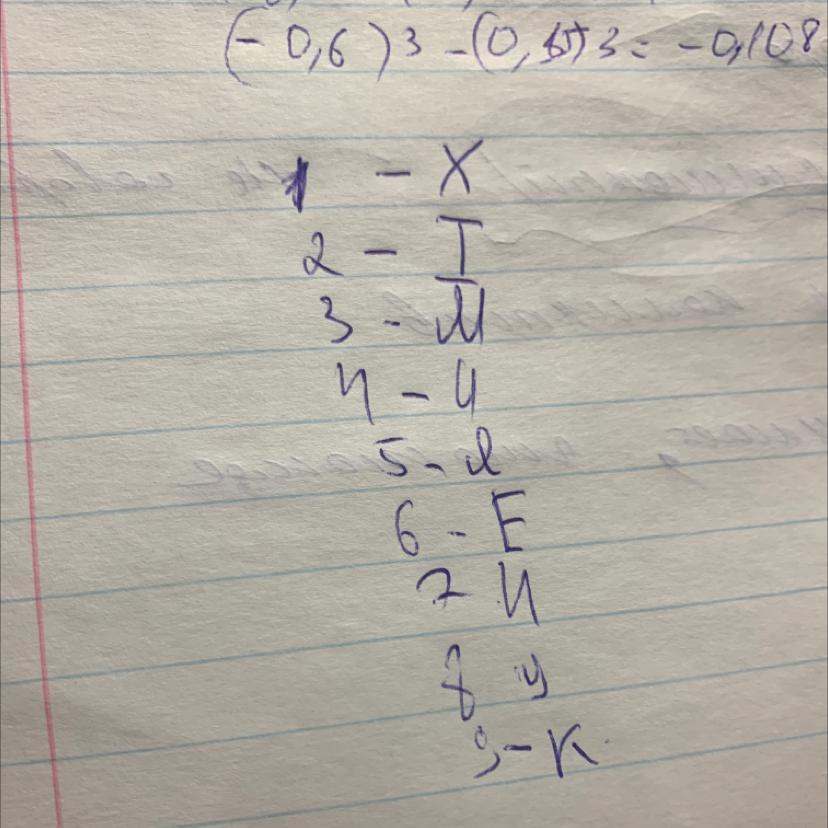 (-0,6)3-(0,)3=-0,108
1 - X
2 - I
3 - М
4 - Ч
5 - d
6 - E
7 И
8 У
9 - К